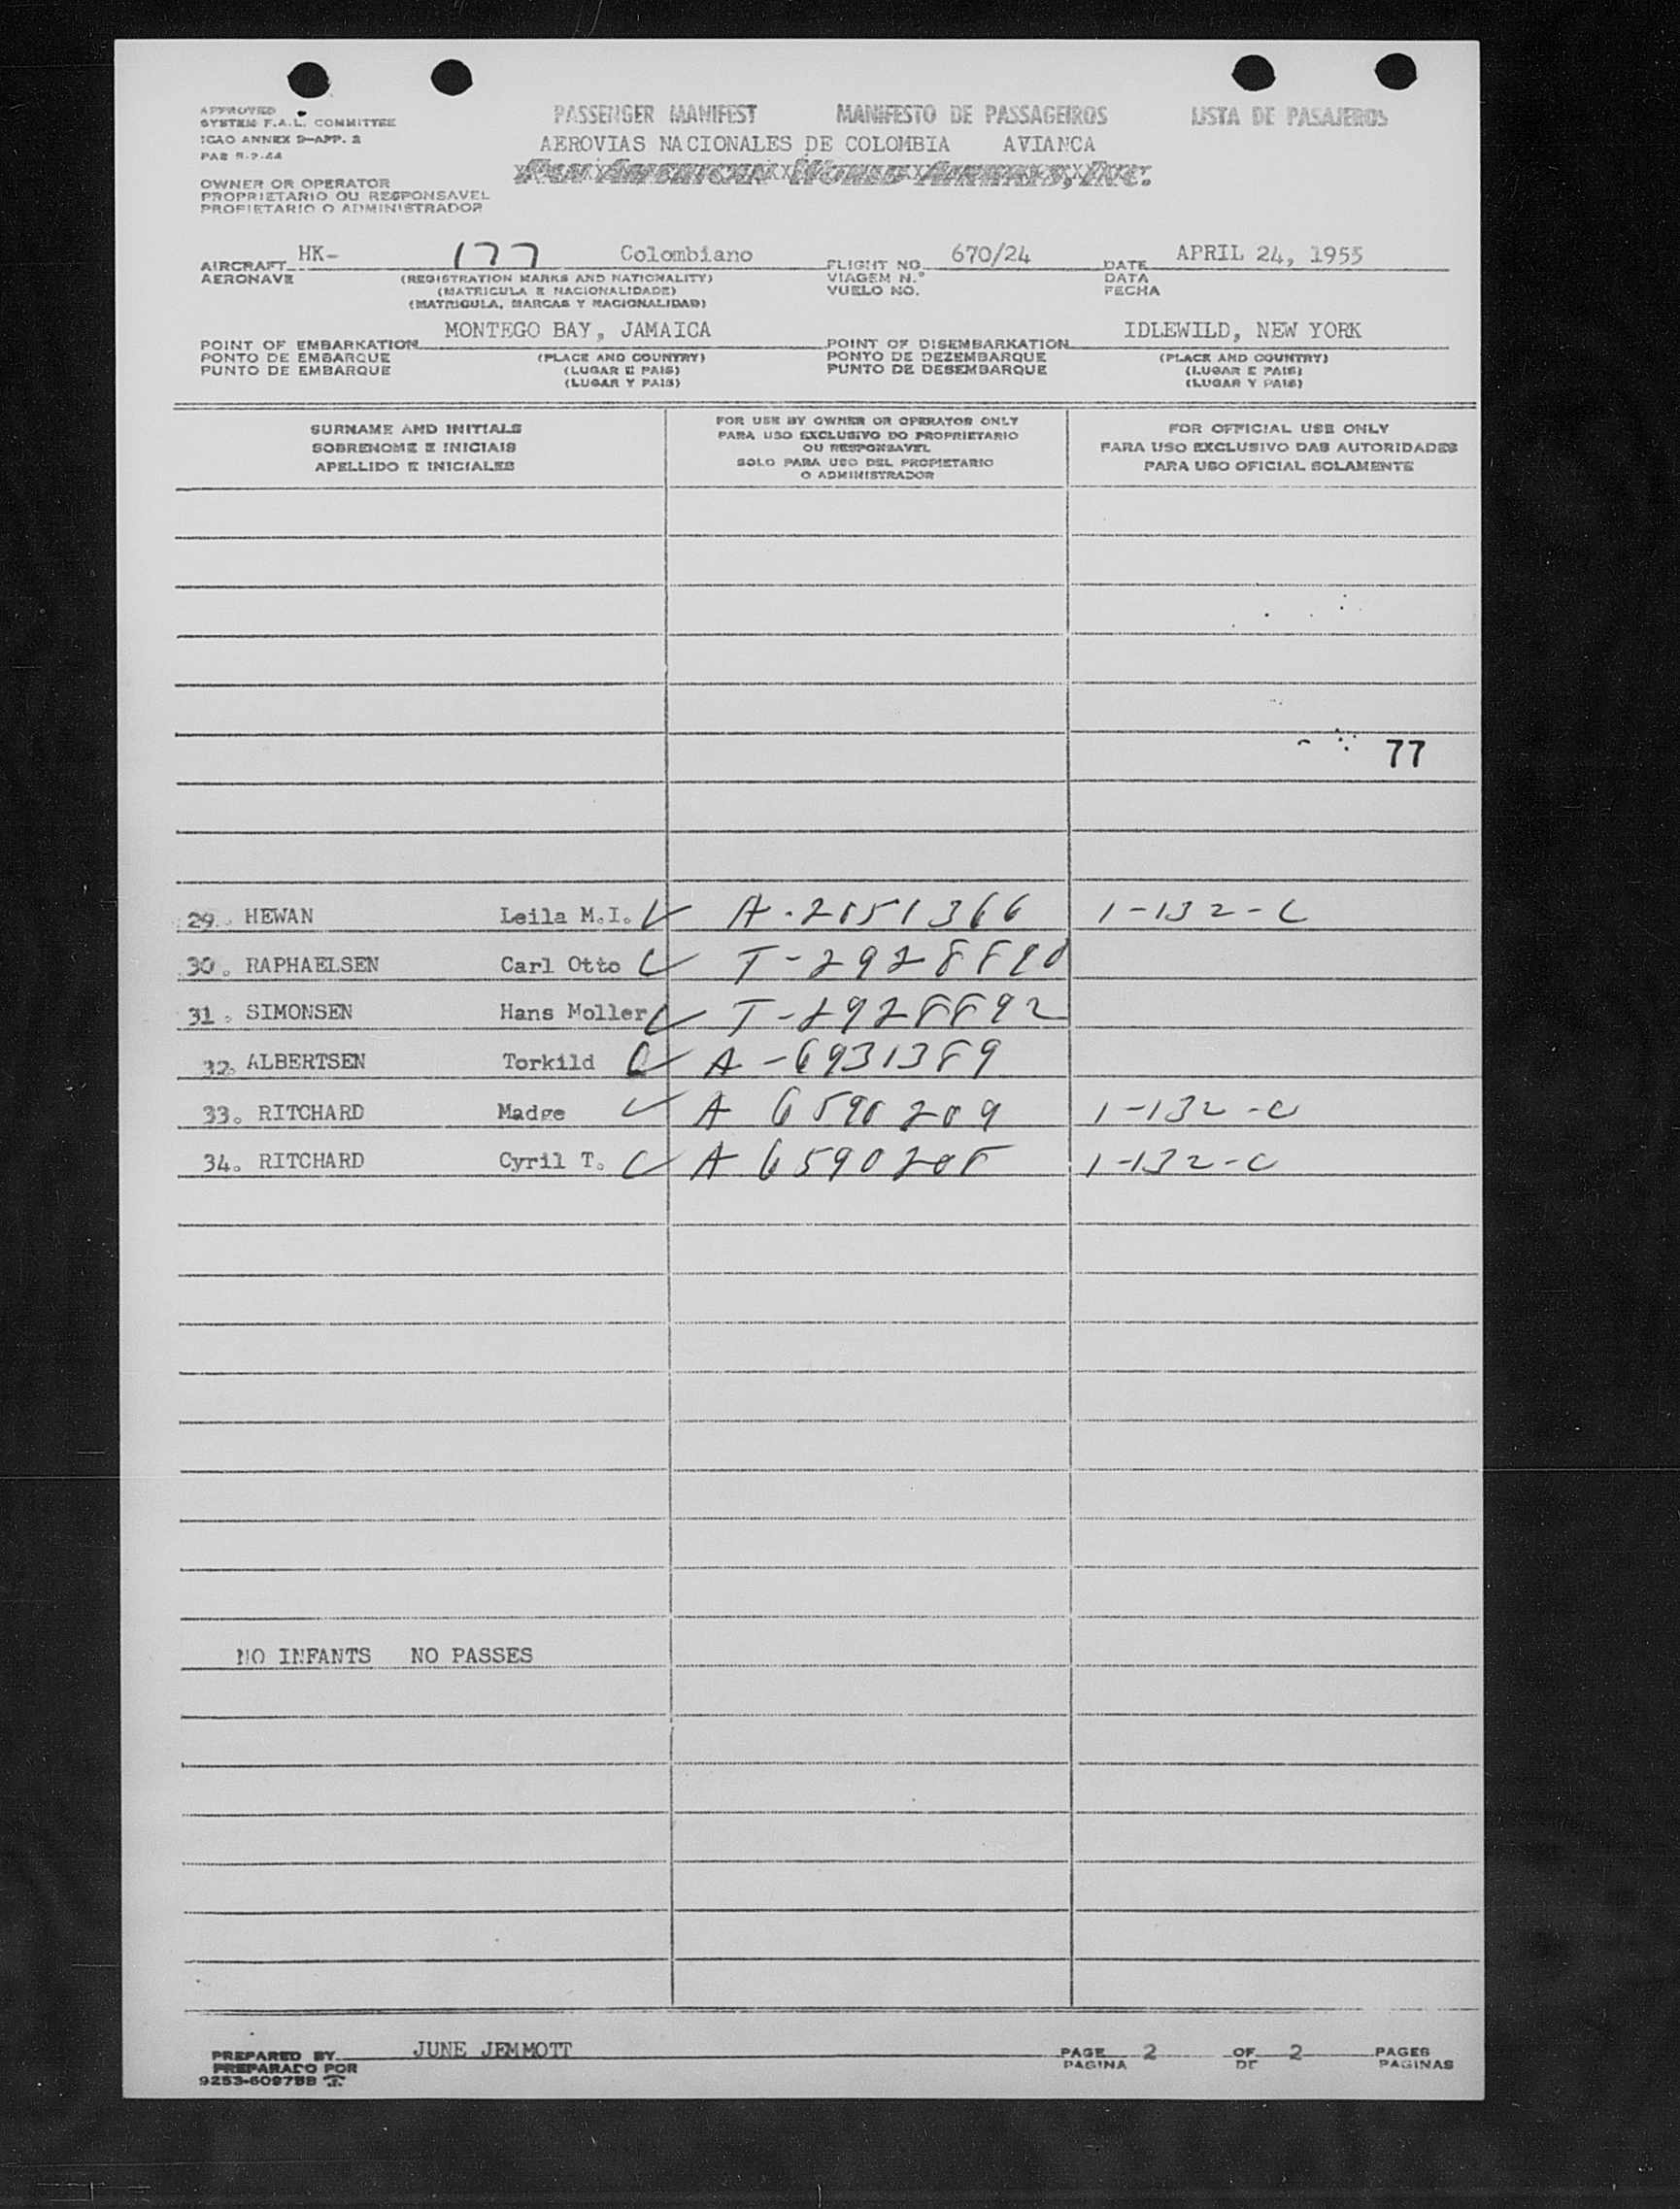 APPROVED
SYSTEM F.A.L. COMMITTEE
ICAO ANNEX 9-APP. 2
PASSENGER MANIFEST MANIFESTO DE PASSAGEIROS LISTA DE PASAJEROS
AEROVIAS NACIONALES DE COLOMBIA AVIANCA
PAN AMERICAN WORLD AIRWAYS, INC.
OWNER OR OPERATOR
PROPRIETARIO OU RESPONSAVEL
PROPIETARIO O ADMINISTRADOR
AIRCRAFT HK- 177 Colombiano FLIGHT NO. 670/24 DATE APRIL 24, 1955
AERONAVE (REGISTRATION MARKS AND NATIONALITY) VIAGEM N.º DATA
(MATRICULA E NACIONALIDADE) VUELO NO. FECHA
(MATRICULA, MARCAS Y NACIONALIDAD)
POINT OF EMBARKATION MONTEGO BAY, JAMAICA POINT OF DISEMBARKATION IDLEWILD, NEW YORK
PONTO DE EMBARQUE (PLACE AND COUNTRY) PONTO DE DEZEMBARQUE (PLACE AND COUNTRY)
PUNTO DE EMBARQUE (LUGAR E PAIS) PUNTO DE DESEMBARQUE (LUGAR E PAIS)
(LUGAR Y PAIS) (LUGAR Y PAIS)
SURNAME AND INITIALS
SOBRENOME E INICIAIS
APELLIDO E INICIALES
FOR USE BY OWNER OR OPERATOR ONLY
PARA USO EXCLUSIVO DO PROPRIETARIO
OU RESPONSAVEL
SOLO PARA USO DEL PROPIETARIO
O ADMINISTRADOR
FOR OFFICIAL USE ONLY
PARA USO EXCLUSIVO DAS AUTORIDADES
PARA USO OFICIAL SOLAMENTE
77
29. HEWAN Leila M.I. 1-132-C
30. RAPHAELSEN Carl Otto T-2928890
31. SIMONSEN Hans Moller T-2928892
32. ALBERTSEN Torkild A-6931389
33. RITCHARD Madge A 6590209 1-132-C
34. RITCHARD Cyril T. A 6590208 1-132-C
NO INFANTS NO PASSES
PREPARED BY JUNE JEMMOTT PAGE 2 OF 2 PAGES
PREPARADO POR PAGINA DE PAGINAS